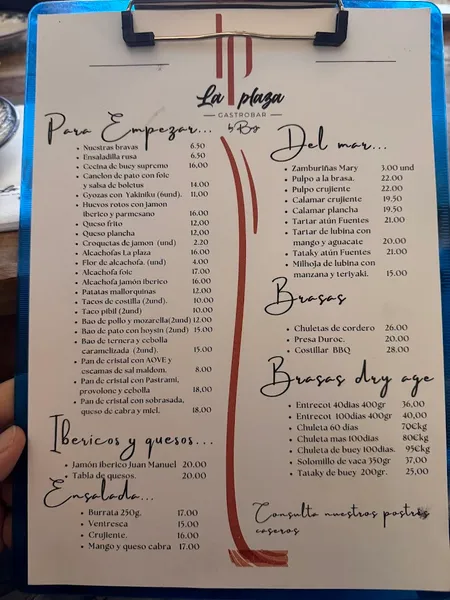 La plaza
GASTROBAR
Para Empezar...
Nuestras bravas 6.50
Ensaladilla rusa 6.50
Cecina de buey supremo 16,00
Canelon de pato con foie
y salsa de boletus 14.00
Gyozas con Yakiniku (6und). 11,00
Huevos rotos con jamon
iberico y parmesano 16.00
Queso frito 12,00
Queso plancha 12,00
Croquetas de jamon (und) 2.20
Alcachofas La plaza 16.00
Flor de alcachofa. (und) 4.00
Alcachofa foie 17.00
Alcachofa jamón iberico 16.00
Patatas mallorquinas 12.00
Tacos de costilla (2und). 10.00
Taco pibil (2und) 10.00
Bao de pollo y mozarella(2und) 12.00
Bao de pato con hoysin (2und) 15.00
Bao de ternera y cebolla
caramelizada (2und). 15.00
Pan de cristal con AOVE y
escamas de sal maldom. 8.00
Pan de cristal con Pastrami,
provolone y cebolla 18,00
Pan de cristal con sobrasada,
queso de cabra y miel. 18.00
Ibericos y quesos...
Jamón iberico Juan Manuel 20.00
Tabla de quesos. 20.00
Ensalada...
Burrata 250g. 17.00
Ventresca 15.00
Crujiente. 16.00
Mango y queso cabra 17.00
Del mar...
Zamburiñas Mary 3.00 und
Pulpo a la brasa. 22.00
Pulpo crujiente 22.00
Calamar crujiente 19.50
Calamar plancha 19.50
Tartar atún Fuentes 21.00
Tartar de lubina con
mango y aguacate 20.00
Tataky atún Fuentes 21.00
Milhoja de lubina con
manzana y teriyaki. 15.00
Brasas
Chuletas de cordero 26.00
Presa Duroc. 20.00
Costillar BBQ 28.00
Brasas dry age
Entrecot 40dias 400gr 36,00
Entrecot 100dias 400gr 40,00
Chuleta 60 dias 70€kg
Chuleta mas 100dias 80€kg
Chuleta de buey 100dias. 95€kg
Solomillo de vaca 350gr 37,00
Tataky de buey 200gr. 25,00
Consulta nuestros postres
caseros